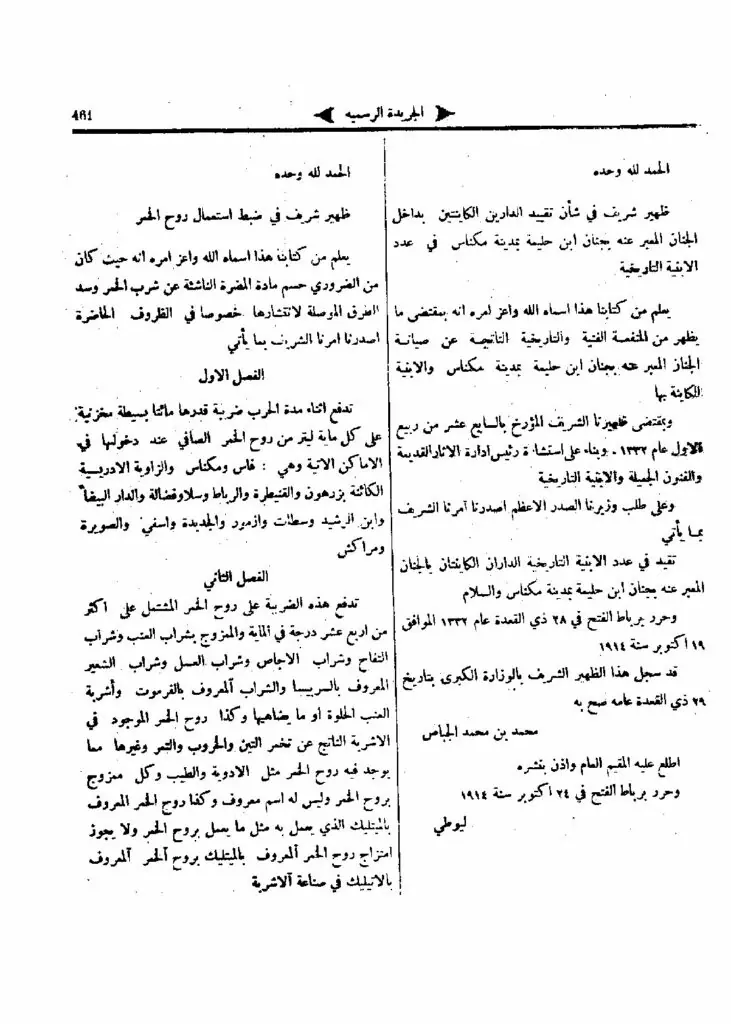 461
الجريدة الرسمية
الحمد لله وحده
ظهير شريف في شأن تقييد الدارين الكاينتين بداخل
الجنان المعبر عنه بجنان ابن حليمة بمدينة مكناس في عدد
الابنية التاريخية
يعلم من كتابنا هذا اسماه الله واعز امره انه بمقتضى ما
يظهر من المنفعة الفنية والتاريخية الناتجة عن صيانة
الجنان المعبر عنه بجنان ابن حليمة بمدينة مكناس والابنية
الكاينة بها
وبمقتضى ظهيرنا الشريف المؤرخ بالسابع عشر من ربيع
الاول عام ١٣٣٢ وبناء على استشارة رئيس ادارة الاثار القديمة
والفنون الجميلة والابنية التاريخية
وعلى طلب وزيرنا الصدر الاعظم اصدرنا آمرنا الشريف
بما يأتي
تقيد في عدد الابنية التاريخية الداران الكاينتان بالجنان
المعبر عنه بجنان ابن حليمة بمدينة مكناس والسلام
وحرر برباط الفتح في ٢٨ ذي القعدة عام ١٣٣٢ الموافق
١٩ اكتوبر سنة ١٩١٤
قد سجل هذا الظهير الشريف بالوزارة الكبرى بتاريخ
٢٩ ذي القعدة عامه صح به
محمد بن محمد الجباص
اطلع عليه المقيم العام واذن بنشره
وحرر برباط الفتح في ٢٤ اكتوبر سنة ١٩١٤
ليوطي
الحمد لله وحده
ظهير شريف في ضبط استعمال روح الخمر
يعلم من كتابنا هذا اسماه الله واعز امره انه حيث كان
من الضروري حسم مادة المضرة الناشئة عن شرب الخمر وسد
الطرق الموصلة لانتشارها خصوصا في الظروف الحاضرة
اصدرنا امرنا الشريف بما يأتي
الفصل الاول
تدفع اثناء مدة الحرب ضريبة قدرها مائتا بسيطة مخزنية
على كل ماية ليتر من روح الخمر الصافي عند دخولها في
الاماكن الاتية وهي : فاس ومكناس والزاوية الادريسية
الكائنة بزرهون والقنيطرة والرباط وسلا وفضالة والدار البيضا
وابن الرشيد وسطات وازمور والجديدة واسفي والصويرة
ومراكش
الفصل الثاني
تدفع هذه الضريبة على روح الخمر المشتمل على اكثر
من اربع عشر درجة في الماية والممزوج بشراب العنب وشراب
التفاح وشراب الاجاص وشراب العسل وشراب الشعير
المعروف بالسربيسا والشراب ٱلمعروف بالفرموت وأشربة
العنب الحلوة او ما يضاهيها وكذا روح الخمر الموجود في
الاشربة الناتج عن تخمر التين والخروب والتمر وغيرها مما
يوجد فيه روح الخمر مثل الادوية والطيب وكل ممزوج
بروح الخمر وليس له اسم معروف وكذا روح الخمر المعروف
بالميتليك الذي يعمل به مثل ما يعمل بروح الخمر ولا يجوز
امتزاج روح الخمر ٱلمعروف بالميتليك بروح ٱلخمر ٱلمعروف
بالاتيليك في صناعة ٱلاشربة